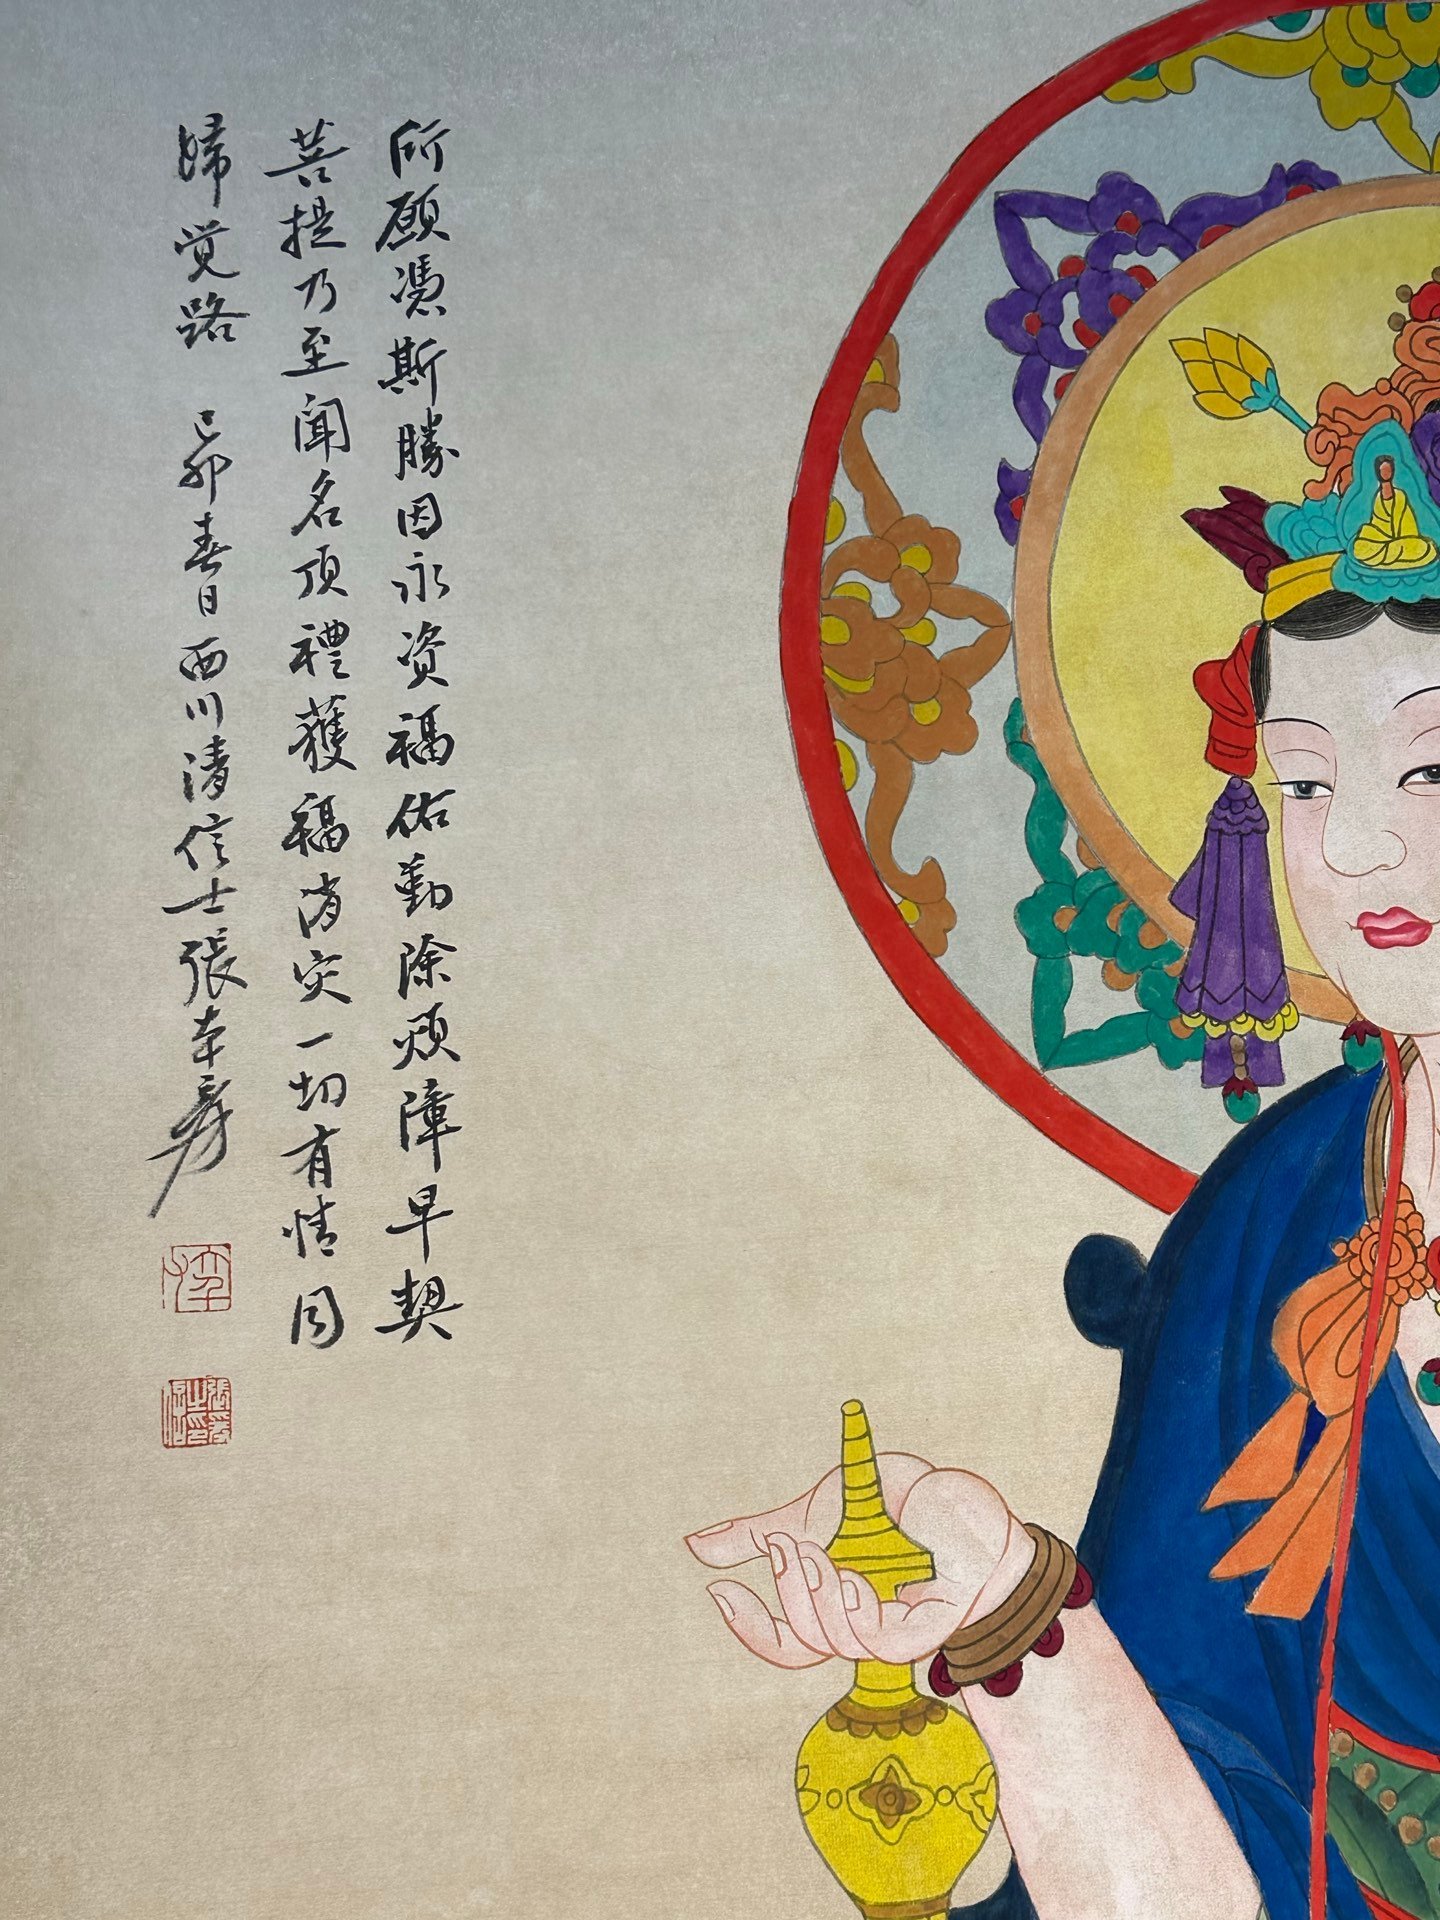 所願憑斯勝因永資福佑勤除煩障早契
菩提乃至闻名頂禮獲福消灾一切有情同
歸觉路 己卯春日西川清信士張大千爰